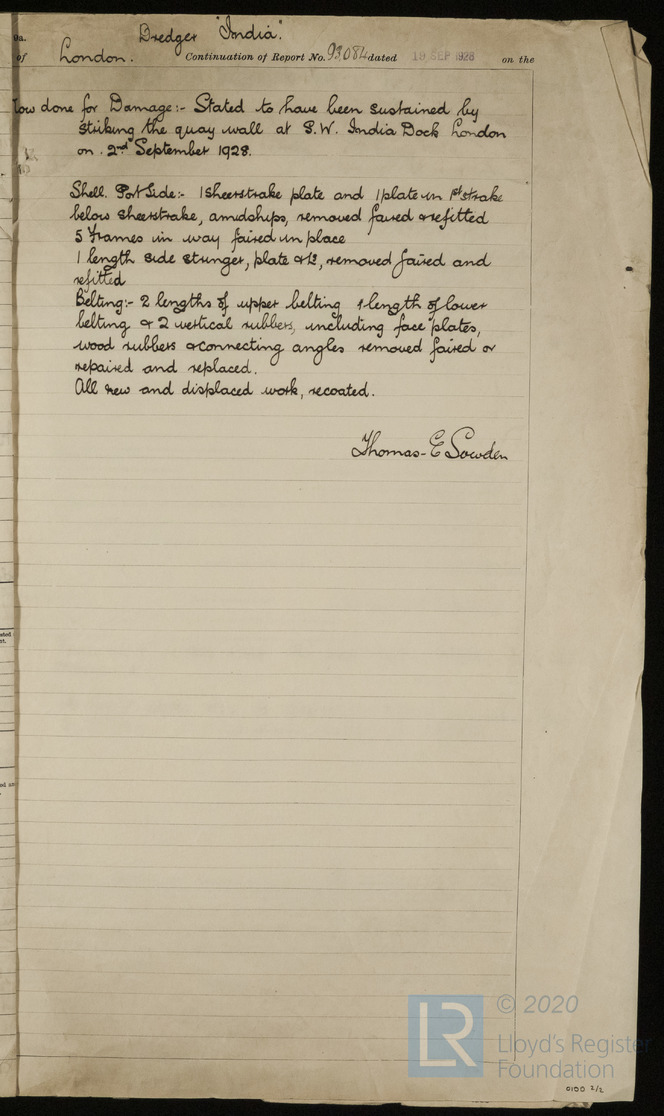 9a.
Dredger "India".
of London. Continuation of Report No. 93,084 dated 19 SEP 1928 on the
Now done for Damage:- Stated to have been sustained by
striking the quay wall at S.W. India Dock London
on 2nd September 1928.
Shell. Port Side:- 1 Sheerstrake plate and 1 plate in 1st strake
below sheerstrake, amidships, removed faired & refitted
5 frames in way faired in place
1 length side stringer, plate & L, removed faired and
refitted
Belting:- 2 lengths of upper belting 1 length of lower
belting & 2 vertical rubbers, including face plates,
wood rubbers & connecting angles removed faired or
repaired and replaced.
All new and displaced work, recoated.
Thomas E Sowden
© 2020
LR Lloyd's Register
Foundation
0100 2/2